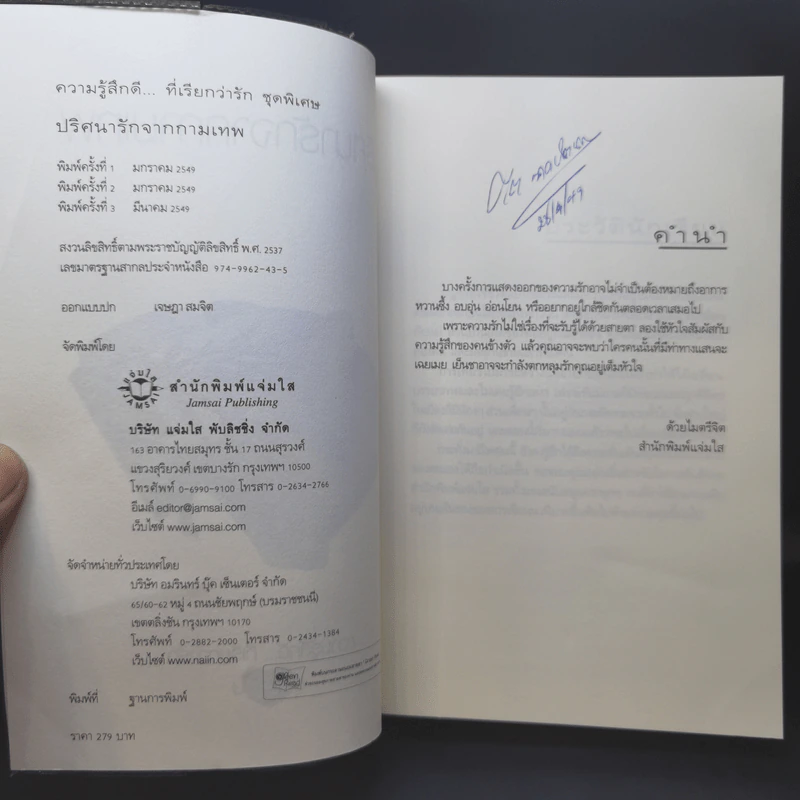 ความรู้สึกดี... ที่เรียกว่ารัก ชุดพิเศษ
ปริศนารักจากกามเทพ
พิมพ์ครั้งที่ 1 มกราคม 2549
พิมพ์ครั้งที่ 2 มกราคม 2549
พิมพ์ครั้งที่ 3 มีนาคม 2549
สงวนลิขสิทธิ์ตามพระราชบัญญัติลิขสิทธิ์ พ.ศ. 2537
เลขมาตรฐานสากลประจำหนังสือ 974-9962-43-5
ออกแบบปก เจษฎา สมจิต
จัดพิมพ์โดย
แจ่มใส
JAMSAI
สำนักพิมพ์แจ่มใส
Jamsai Publishing
บริษัท แจ่มใส พับลิชชิ่ง จำกัด
163 อาคารไทยสมุทร ชั้น 17 ถนนสุรวงศ์
แขวงสุริยวงศ์ เขตบางรัก กรุงเทพฯ 10500
โทรศัพท์ 0-6990-9100 โทรสาร 0-2634-2766
อีเมล์ editor@jamsai.com
เว็บไซต์ www.jamsai.com
จัดจำหน่ายทั่วประเทศโดย
บริษัท อมรินทร์ บุ๊ค เซ็นเตอร์ จำกัด
65/60-62 หมู่ 4 ถนนชัยพฤกษ์ (บรมราชชนนี)
เขตตลิ่งชัน กรุงเทพฯ 10170
โทรศัพท์ 0-2882-2000 โทรสาร 0-2434-1384
เว็บไซต์ www.naiin.com
พิมพ์ที่ ฐานการพิมพ์
ราคา 279 บาท
คำนำ
บางครั้งการแสดงออกของความรักอาจไม่จำเป็นต้องหมายถึงอาการ
หวานซึ้ง อบอุ่น อ่อนโยน หรืออยากอยู่ใกล้ชิดกันตลอดเวลาเสมอไป
เพราะความรักไม่ใช่เรื่องที่จะรับรู้ได้ด้วยสายตา ลองใช้หัวใจสัมผัสกับ
ความรู้สึกของคนข้างตัว แล้วคุณอาจจะพบว่าใครคนนั้นที่มีท่าทางแสนจะ
เฉยเมย เย็นชาอาจจะกำลังตกหลุมรักคุณอยู่เต็มหัวใจ
ด้วยไมตรีจิต
สำนักพิมพ์แจ่มใส